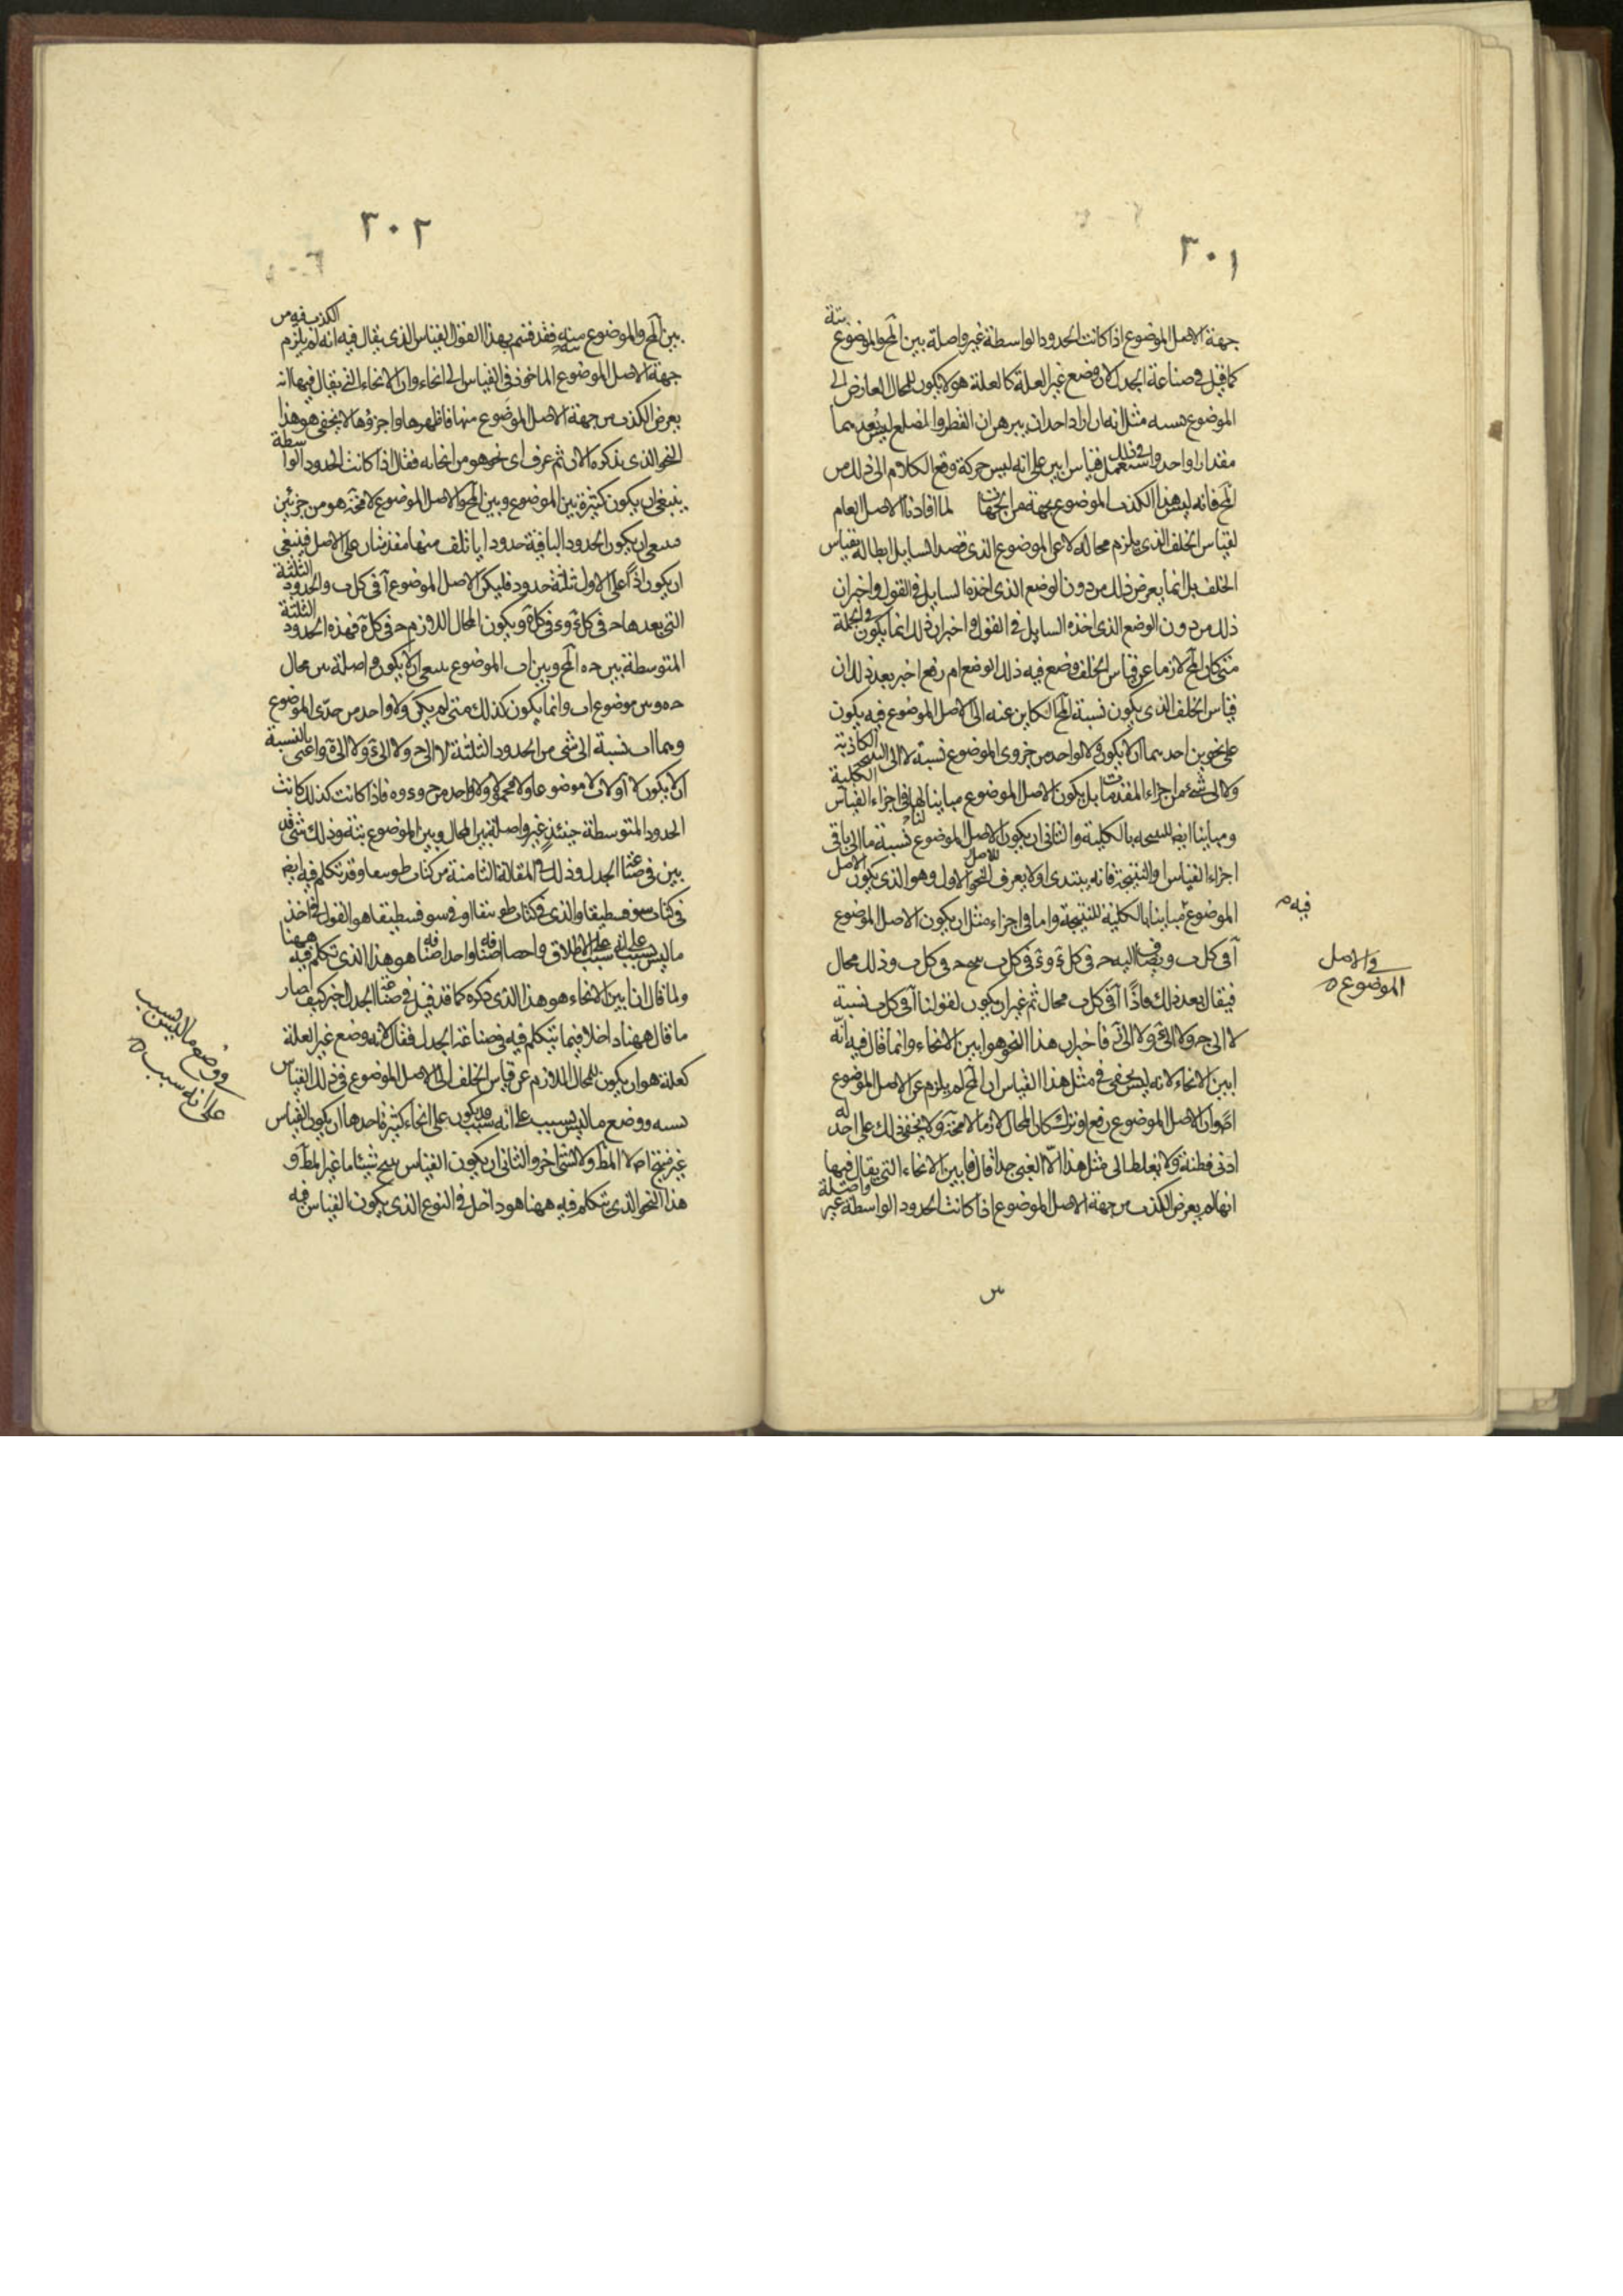 ٣٠١
جهة الاصل الموضوع اذا كانت الحدود الواسطة غير واصلة بين المح والموضوع بتة
كما قيل في صناعة الجدل لان وضع غير العلة كالعلة هو لا يكون للمحال العارض الى
الموضوع نسبة مثل انه ان اراد احد ان يبرهن ان القطر والضلع ليس يعدهما
مقدار واحد واستعمل في ذلك قياس ابين على انه ليس حركة وقع الكلام الى ذلك من
المح فانه ليس هذا الكذب الموضوع بجهة من الجهات لما افادنا الاصل العام
لقياس الخلف الذى يلزم محاله لا عن الموضوع الذى قصد السايل ابطاله بقياس
الخلف بل انما يعرض ذلك من دون الوضع الذى اخذه السايل في القول واخبر ان
ذلك من دون الوضع الذى اخذه السايل في القول واخبر ان ذلك انما يكون في الجملة
متى كان المح لازما عن قياس الخلف وضع فيه ذلك الوضع ام رفع اخبر بعد ذلك ان
قياس الخلف الذى يكون نسبة المح الكاين عنه الى الاصل الموضوع فيه يكون
على نحوين احدهما ان لا يكون ولا لواحد من جزوى الموضوع نسبة لا الى النتيجة الكاذبة
ولا الى شىء من اجزاء المقدمات بل يكون الاصل الموضوع مباينا لها في اجزاء القياس الكلية
ومباينا ايضا للنتيجة بالكلية والثانى ان يكون للاصل الموضوع نسبة ما الى باقى
اجزاء القياس او النتيجة فانه يبتدى اولا يعرف النحو الاول وهو الذى يكون الاصل
الموضوع مباينا بالكلية للنتيجة واما في اجزاء مثل ان يكون الاصل الموضوع
فيه م
آ في كل ب ويضاف اليه ح في كل ء وء في كل ب ينتج ح في كل ب وذلك محال
في الاصل
الموضوع
فيقال بعد ذلك فاذًا آ في كل ب محال ثم غير ان يكون لقولنا آ في كل ب نسبة
لا الى ح ولا الى ء ولا الى فاخبر ان هذا النحو هو ابين الانحاء وانما قال فيه انه
ابين الانحاء لانه ليس يخفى في مثل هذا القياس ان المح لم يلزم عن الاصل الموضوع
وان الاصل الموضوع رفع او ترك كان المحال لازما لا محة ولا يخفى ذلك على احد له
ادنى فطنة ولا يغلط الى مثل هذا الا الغبى جدا قال فابين الانحاء التى يقال فيها
انها لم يعرض الكذب من جهة الاصل الموضوع اذا كانت الحدود الواسطة غير واصلة
٣٠٢
بين المح والموضوع منه فقد فهم بهذا القول القياس الذى يقال فيه انه لم يلزم الكذب فيه من
جهة الاصل الموضوع الماخوذ في القياس الى انحاء وان الانحاء التى يقال فيها انه
يعرض الكذب من جهة الاصل الموضوع منها فاظهرها واجزؤها لا يخفى هو هذا
النحو الذى يذكره الان ثم عرف اى نحو هو من انحائه فقال اذا كانت الحدود الواسطة
ينبغى ان يكون كثيرة بين الموضوع وبين المح والاصل الموضوع لا محة هو من جزئين
فينبغى ان يكون الحدود الباقية حدودا يأتلف منها مقدمتان على الاصل فينبغى
ان يكون اذًا على الاول ثلثة حدود فليكن الاصل الموضوع آ في كل ب والحدود الثلثة
التى بعدها ح في كل ء وء في كل ه ويكون المحال اللازم ح في كل ه فهذه الحدود الثلثة
المتوسطة بين ح ه المح وبين اب الموضوع ينبغى ان لا يكون واصلة بين محال
ح ه وبين موضوع اب وانما يكون كذلك متى لم يكن ولا واحد من حدى الموضوع
وهما اب نسبة الى شى من الحدود الثلثة لا الى ح ولا الى ء ولا الى ه واعنى بالنسبة
ان لا يكون لا آ ولا ب لا موضوعا ولا محمولا ولا واحد من ح وء وه فاذا كانت كذلك كانت
الحدود المتوسطة حينئذ غير واصلة بين المحال وبين الموضوع بتة وذلك شى قد
بين في صناعة الجدل وذلك في المقالة الثامنة من كتاب طوبيقا وقد تكلم فيه ايضا
في كتاب سوفسطيقا والذى في كتاب طوبيقا او في سوفسطيقا هو القول في اخذ
ما ليس بسبب على انه سبب على الاطلاق هو هذا الذى تكلم فيه ههنا
ولما قال انا بين الانحاء هو هذا الذى ذكره كما قد قيل في صناعة الجدل اخبر كيف صار
ما قال ههنا داخلا فيما يتكلم فيه في صناعة الجدل فقال لانه وضع غير العلة
كعلة هو ان يكون للمحال اللازم عن قياس الخلف الى الاصل الموضوع في ذلك القياس
نسبة ووضع ما ليس بسبب على انه سبب قد يكون على انحاء كثيرة احدها ان يكون القياس
في وضع ما ليس بسبب
على انه سبب
غير منتج اصلا لا المط ولا لشى اخر والثانى ان يكون القياس ينتج شيئا ما غير المط و
هذا النحو الذى تتكلم فيه ههنا هو داخل في النوع الذى يكون القياس فيه